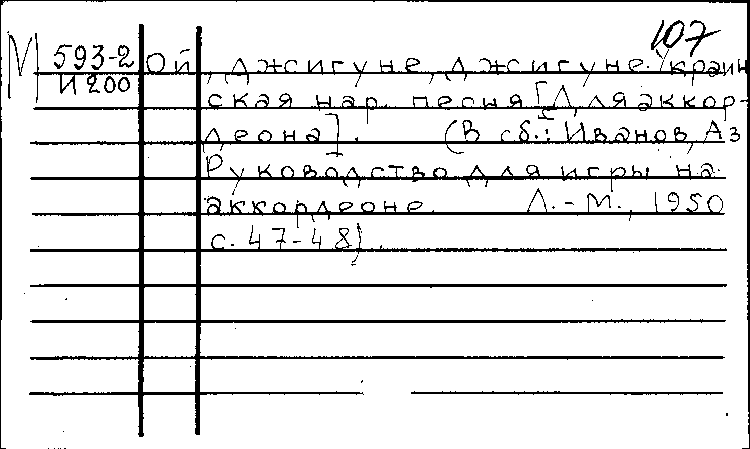 107
М 593-2 Ой, джигуне, джигуне. Украин
И 200 ская нар. песня [Для аккор-
деона]. (В сб.: Иванов, Аз
Руководство для игры на
аккордеоне. Л.-М., 1950
с. 47-48).